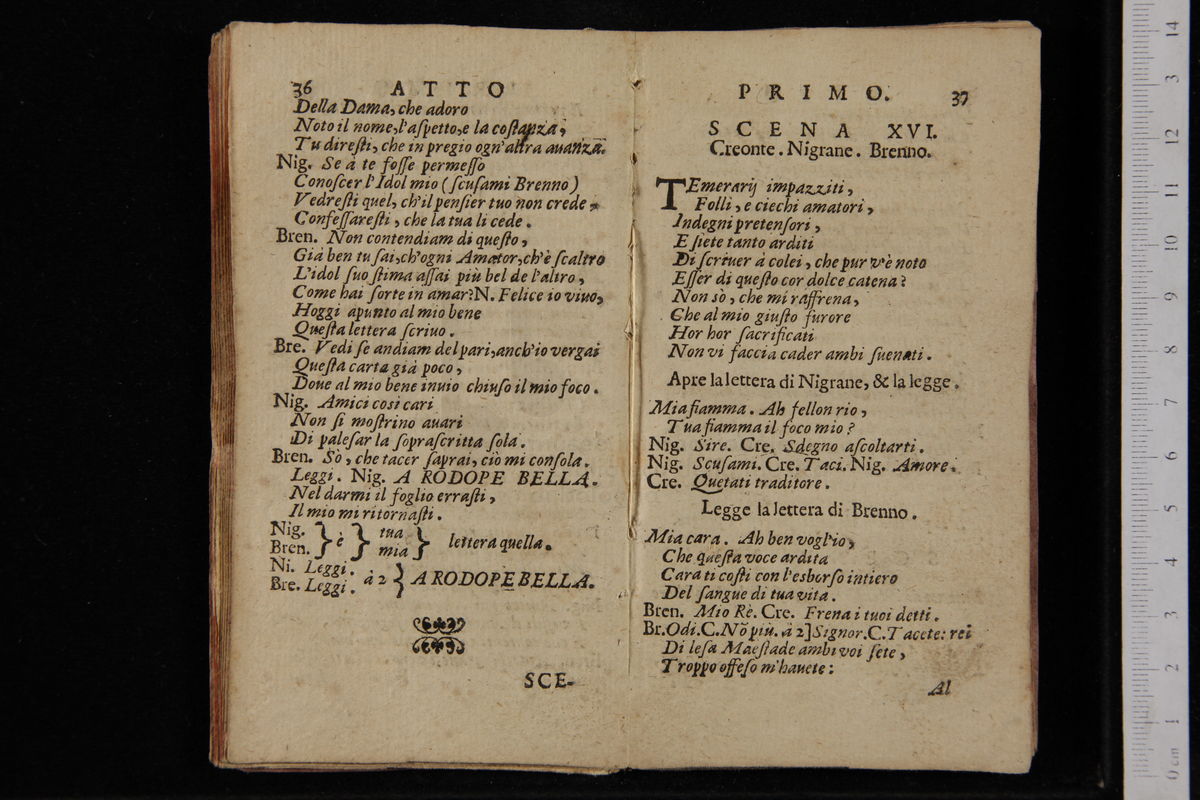 36 ATTO
Della Dama, che adoro
Noto il nome, l'aſpetto, e la coſtanza,
Tu direſti, che in pregio ogn'altra auanza.
Nig. Se à te foſſe permeſſo
Conoſcer l'Idol mio (ſcuſami Brenno)
Vedreſti quel, ch'il penſier tuo non crede,
Confeſſareſti, che la tua li cede.
Bren. Non contendiam di queſto,
Già ben tu ſai, ch'ogni Amator, ch'è ſcaltro
L'idol ſuo ſtima aſſai più bel de l'altro,
Come hai ſorte in amar? N. Felice io viuo,
Hoggi apunto al mio bene
Queſta lettera ſcriuo.
Bre. Vedi ſe andiam del pari, anch'io vergai
Queſta carta già poco,
Doue al mio bene inuio chiuſo il mio foco.
Nig. Amici così cari
Non ſi moſtrino auari
Di paleſar la ſopraſcritta ſola.
Bren. Sò, che tacer ſaprai, ciò mi conſola.
Leggi. Nig. A RODOPE BELLA.
Nel darmi il foglio erraſti,
Il mio mi ritornaſti.
Nig. } è } tua } lettera quella.
Bren. } mia }
Ni. Leggi. à 2 { A RODOPE BELLA.
Bre. Leggi.
SCE-
PRIMO. 37
SCENA XVI.
Creonte. Nigrane. Brenno.
TEmerarij impazziti,
Folli, e ciechi amatori,
Indegni pretenſori,
E ſiete tanto arditi
Di ſcriuer à colei, che pur v'è noto
Eſſer di queſto cor dolce catena?
Non sò, che mi raffrena,
Che al mio giuſto furore
Hor hor ſacrificati
Non vi faccia cader ambi ſuenati.
Apre la lettera di Nigrane, & la legge.
Mia fiamma. Ah fellon rio,
Tua fiamma il foco mio?
Nig. Sire. Cre. Sdegno aſcoltarti.
Nig. Scuſami. Cre. Taci. Nig. Amore.
Cre. Quetati traditore.
Legge la lettera di Brenno.
Mia cara. Ah ben vogl'io,
Che queſta voce ardita
Cara ti coſti con l'esborſo intiero
Del ſangue di tua vita.
Bren. Mio Rè. Cre. Frena i tuoi detti.
Br. Odi. C. Nõ più. à 2] Signor. C. Tacete: rei
Di leſa Maeſtade ambi voi ſete,
Troppo offeſo m'hauete:
Al